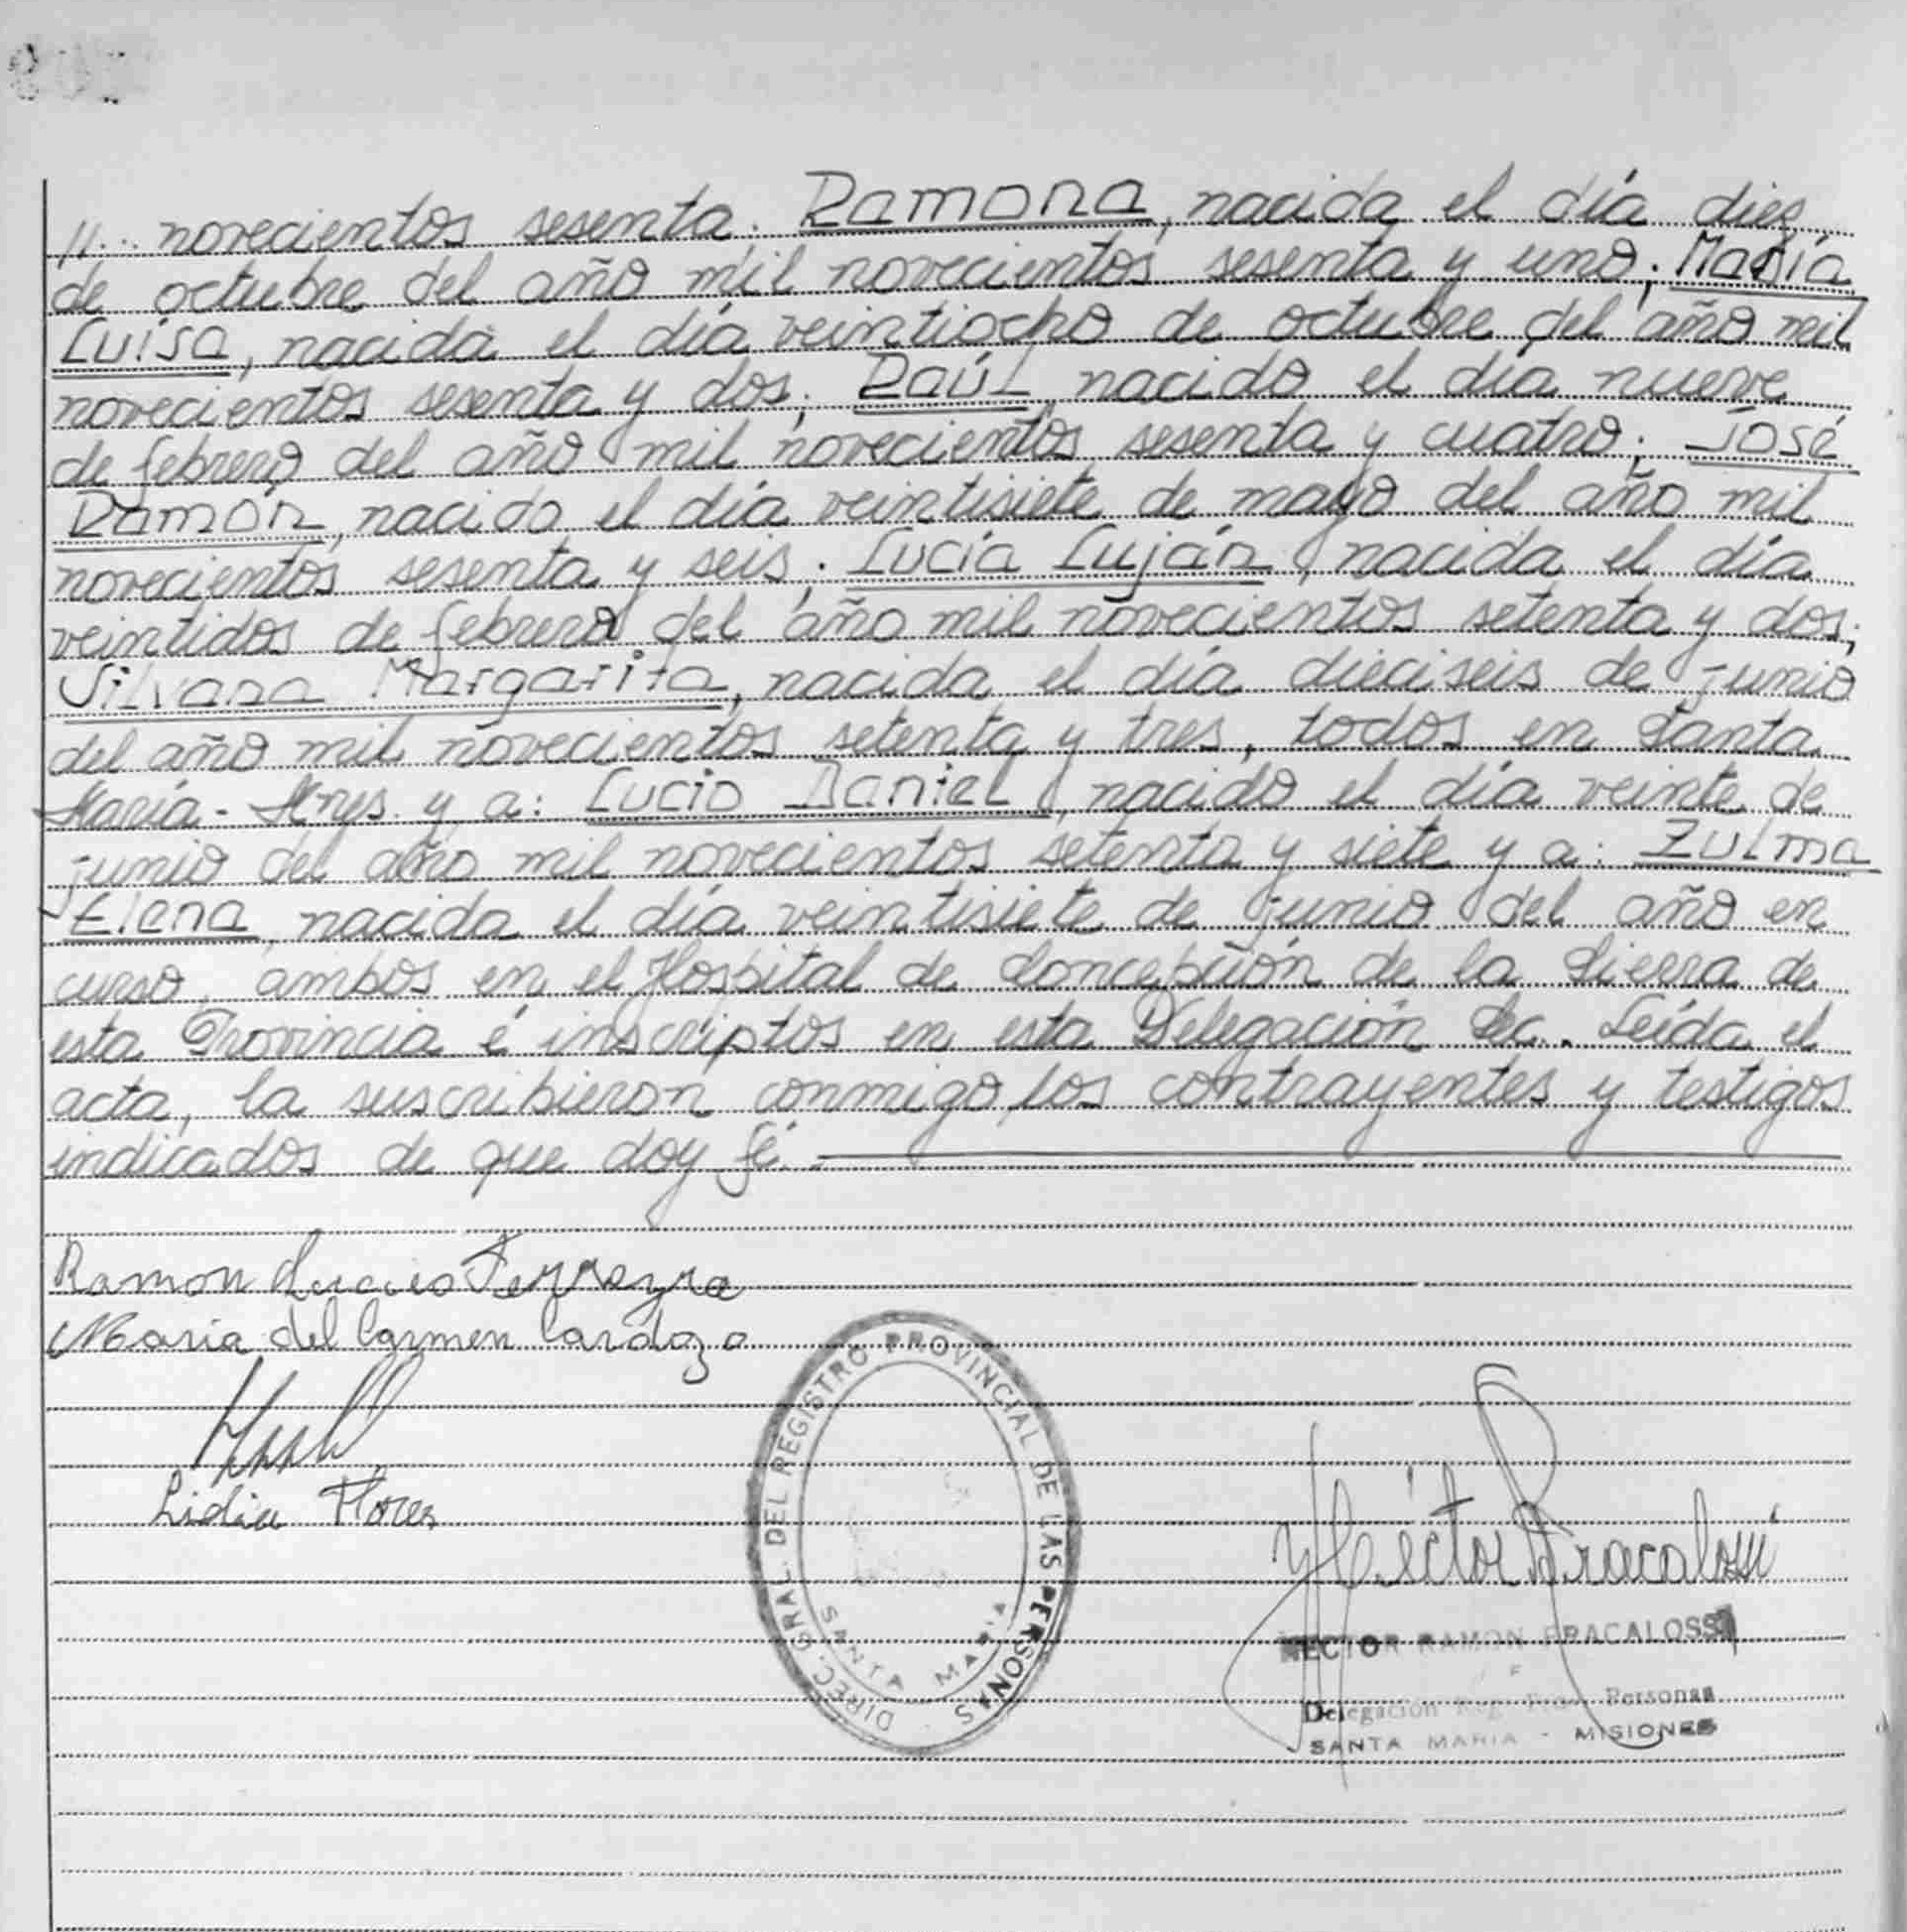 //... novecientos sesenta; Ramona, nacida el día diez
de octubre del año mil novecientos sesenta y uno; María
Luisa, nacida el día veintiocho de octubre del año mil
novecientos sesenta y dos; Raúl, nacido el día nueve
de febrero del año mil novecientos sesenta y cuatro; José
Ramón, nacido el día veintisiete de mayo del año mil
novecientos sesenta y seis; Lucía Luján, nacida el día
veintidos de febrero del año mil novecientos setenta y dos;
Silvana Margarita, nacida el día dieciseis de junio
del año mil novecientos setenta y tres, todos en Santa
María - Mnes. y a: Lucio Daniel, nacido el día veinte de
junio del año mil novecientos setenta y siete y a: Zulma
Elena, nacida el día veintisiete de junio del año en
curso, ambos en el Hospital de Concepción de la Sierra de
esta Provincia é inscriptos en esta Delegación Sec.. Leída el
acta, la suscribieron conmigo, los contrayentes y testigos
indicados de que doy fé.
Ramon Lucio Ferreyra
Maria del Carmen Cardozo
Lidia Flores
DIREC. GRAL. DEL REGISTRO PROVINCIAL DE LAS PERSONAS
SANTA MARIA
Héctor Bracalossi
HECTOR RAMON BRACALOSSI
Delegación Reg. Prov. Personas
SANTA MARIA - MISIONES